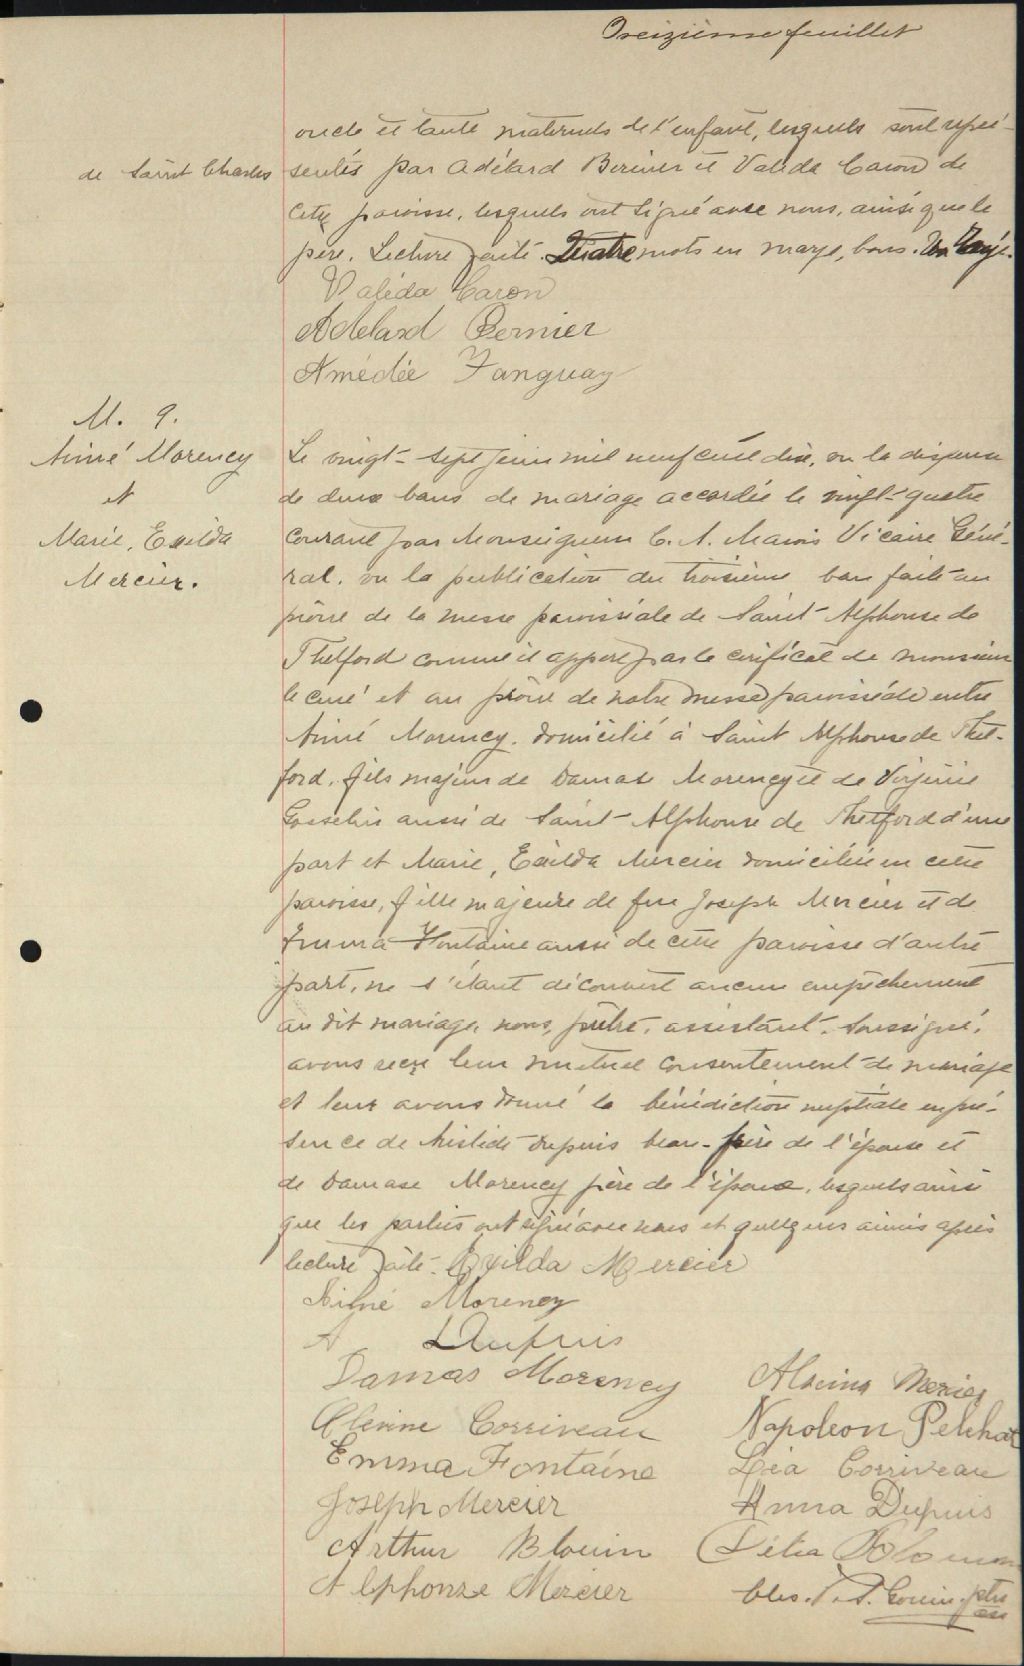 Treizième feuillet
oncle et tante maternels de l'enfant, lesquels sont repré-
de Saint Charles
sentés par Adélard Bernier et Valéda Caron de
cette paroisse, lesquels ont signé avec nous, ainsi que le
père. Lecture faite. Quatre mots en marge, bons. Un rayé.
Valéda Caron
Adelard Bernier
Amédée Tanguay
M. 9.
Aimé Morency
et
Marie, Exilda
Mercier.
Le vingt-sept juin mil neuf cent dix, vu la dispense
de deux bans de mariage accordée le vingt-quatre
courant par Monseigneur C. A. Marois Vicaire Géné-
ral, vu la publication du troisième ban faite au
prône de la messe paroissiale de Saint-Alphonse de
Thetford comme il appert par le cerificat de monsieur
le curé et au prône de notre messe paroissiale entre
Aimé Morency, domicilié à Saint Alphonse de Thet-
ford, fils majeur de Damase Morency et de Virginie
Gosselin aussi de Saint-Alphonse de Thetford d'une
part et Marie, Exilda Mercier domiciliée en cette
paroisse, fille majeure de feu Joseph Mercier et de
Emma Fontaine aussi de cette paroisse d'autre
part, ne s'étant découvert aucun empêchement
au dit mariage, nous, prêtre, assistant, soussigné,
avons reçu leur mutuel consentement de mariage
et leur avons donné la bénédiction nuptiale en pré-
sence de Aristide Dupuis beau-frère de l'épouse et
de Damase Morency père de l'époux, lesquels ainsi
que les parties ont signé avec nous et quelques amis après
lecture faite. Exilda Mercier
Aimé Morency
A Dupuis
Damas Morency Alvina Mercier
Corriveau Napoleon Pelchat
Emma Fontaine Léa Corriveau
Joseph Mercier Anna Dupuis
Arthur Blouin Délia Blouin
Alphonse Mercier Chs. Gouin ptre